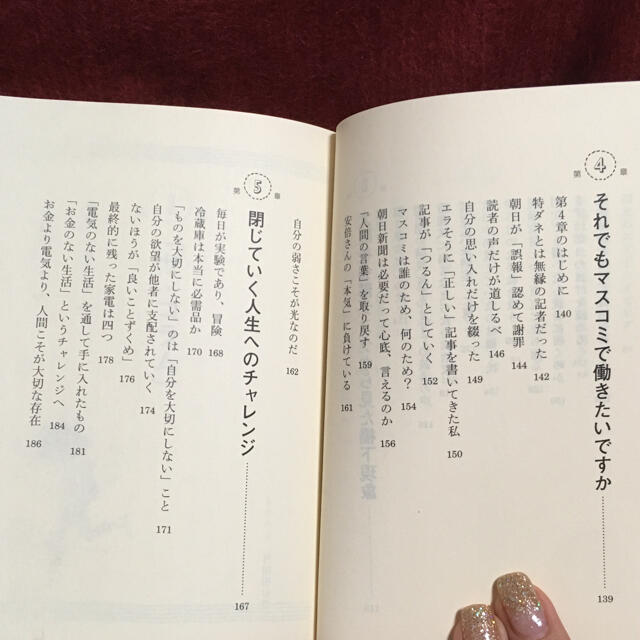 第4章 それでもマスコミで働きたいですか……139
第4章のはじめに 140
特ダネとは無縁の記者だった 142
朝日が「誤報」認めて謝罪 144
読者の声だけが道しるべ 146
自分の思い入れだけを綴った 149
エラそうに「正しい」記事を書いてきた私 150
記事が「つるん」としていく 152
マスコミは誰のため、何のため? 154
朝日新聞は必要だって心底、言えるのか 156
「人間の言葉」を取り戻す 159
安倍さんの「本気」に負けている 161
自分の弱さこそが光なのだ 162
第5章 閉じていく人生へのチャレンジ……167
毎日が実験であり、冒険 168
冷蔵庫は本当に必需品か 170
「ものを大切にしない」のは「自分を大切にしない」こと 171
自分の欲望が他者に支配されていく 174
ないほうが「良いことずくめ」 176
最終的に残った家電は四つ 178
「電気のない生活」を通して手に入れたもの 181
「お金のない生活」というチャレンジへ 184
お金より電気より、人間こそが大切な存在 186